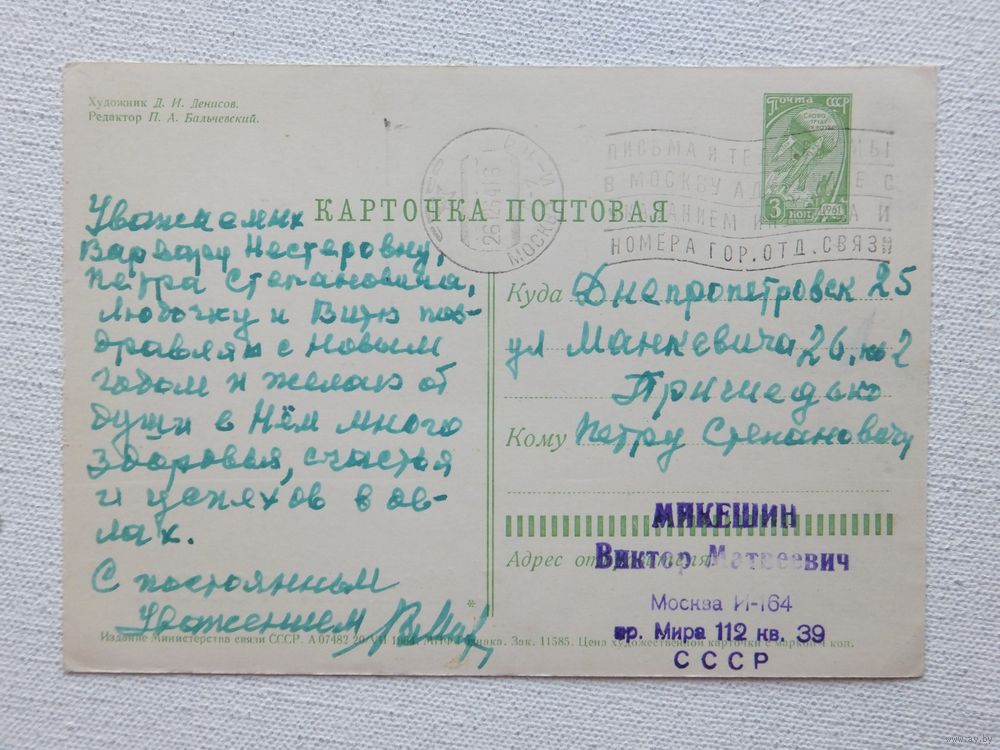 Художник Д. И. Денисов.
Редактор П. А. Бальчевский.
ПОЧТА СССР
3 КОП. 1961
26 12 64 16
МОСКВА
ПИСЬМА И
В МОСКВУ
С
И
НОМЕРА ГОР. ОТД. СВЯЗИ
КАРТОЧКА ПОЧТОВАЯ
Уважаемых
Варвару Нестеровну,
Петра Степановича,
Любочку и Витю поз-
дравляю с новым
годом и желаю от
души в Нём много
здоровья, счастья
и успехов в
С постоянным
Уважением
Куда Днепропетровск 25
ул Манкевича 26, кв 2
Кому Петру Степановичу
Адрес отправителя:
МИКЕШИН
Виктор Матвеевич
Москва И-164
пр. Мира 112 кв. 39
СССР
Издание Министерства связи СССР. А 07482 20/VII 1964. Зак. 11585. Цена художественной карточки с маркой коп.
www.ay.by